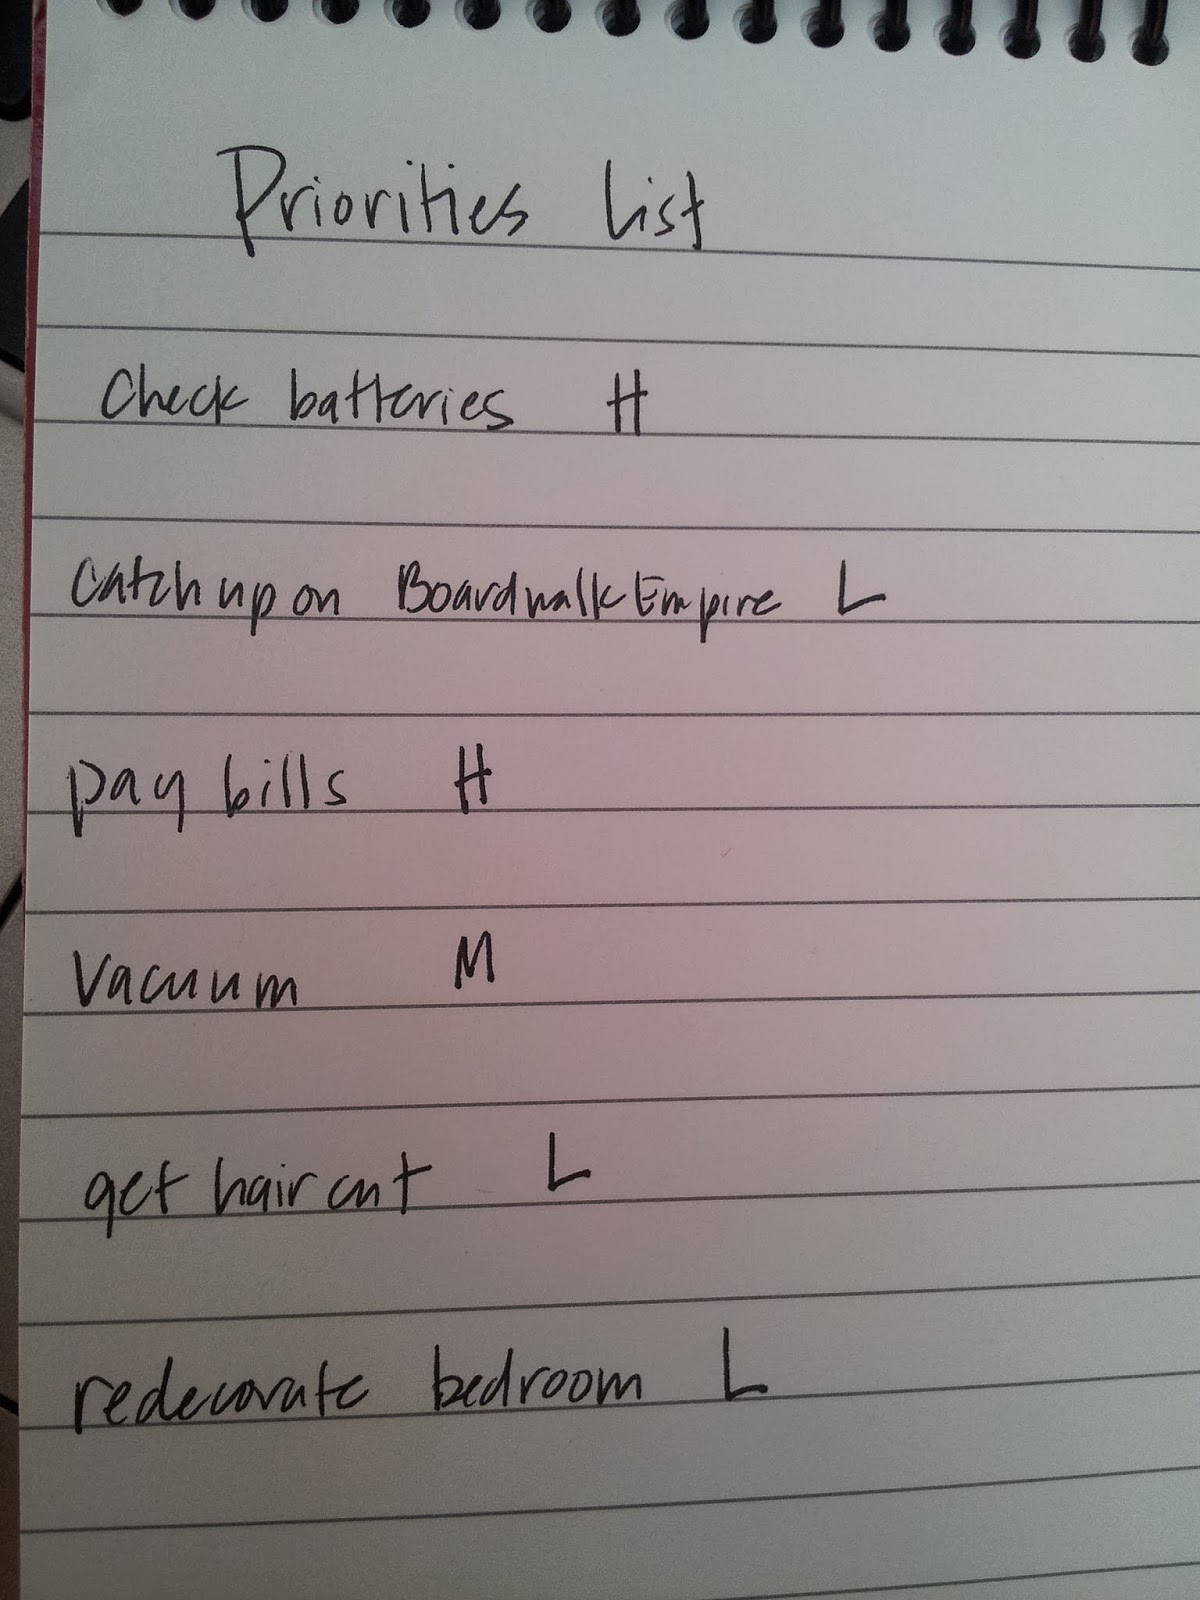 Priorities list
Check batteries H
Catch up on Boardwalk Empire L
pay bills H
Vacuum M
get hair cut L
redecorate bedroom L